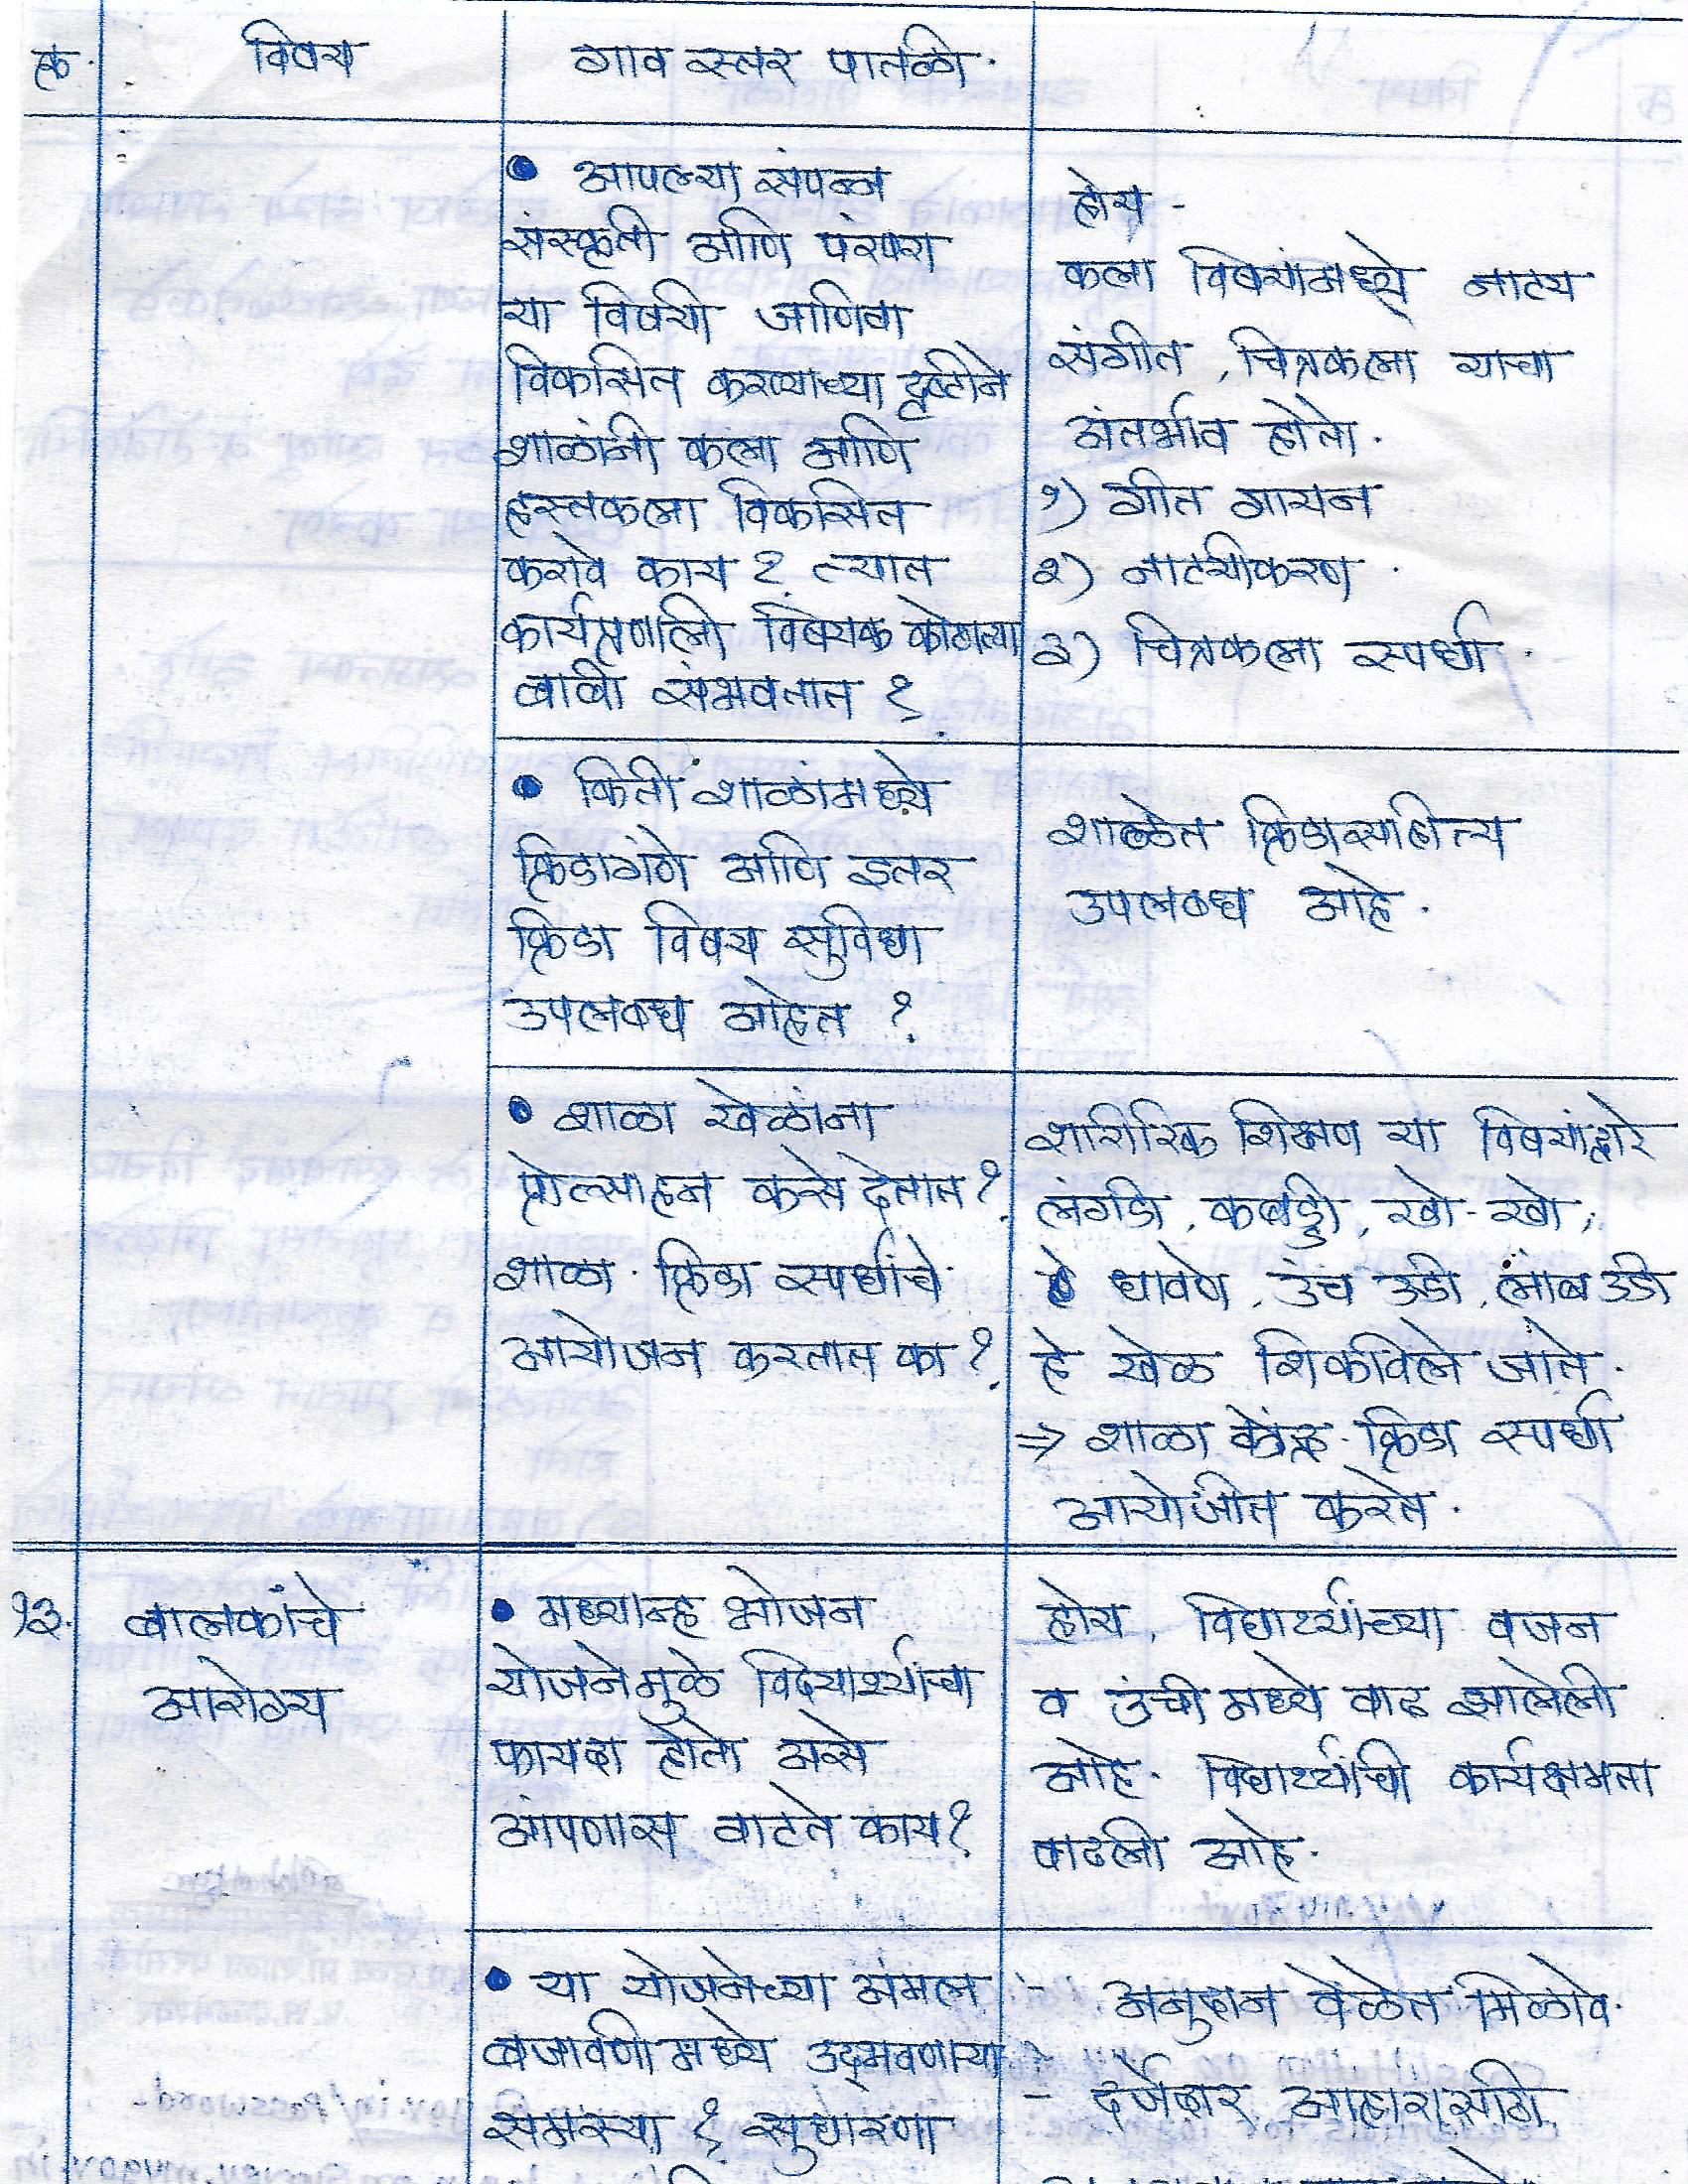 क्र. विषय गाव स्तर पातळी.
• आपल्या संपन्न
संस्कृती आणि परंपरा
या विषयी जाणिवा
विकसित करण्याच्या दृष्टीने
शाळांनी कला आणि
हस्तकला विकसित
करावे काय ? त्यात
कार्यप्रणाली विषयक कोणत्या
बाबी संभवतात ?
होय -
कला विषयांमध्ये नाट्य
संगीत, चित्रकला याचा
अंतर्भाव होतो.
१) गीत गायन
२) नाट्यीकरण.
३) चित्रकला स्पर्धा.
• किती शाळांमध्ये
क्रिडागंणे आणि इतर
क्रिडा विषय सुविधा
उपलब्ध आहेत ?
शाळेत क्रिडासाहीत्य
उपलब्ध आहे.
• शाळा खेळांना
प्रोत्साहन कसे देतात ?
शाळा क्रिडा स्पर्धांचे
आयोजन करतात का ?
शारीरिक शिक्षण या विषयांद्वारे
लंगडी, कबड्डी, खो-खो,
धावणे, उंच उडी, लांब उडी
हे खेळ शिकविले जाते.
⇒ शाळा क्रिडा स्पर्धा
आयोजीत करते.
१३. बालकांचे
आरोग्य
• मध्यान्ह भोजन
योजनेमुळे विद्यार्थ्यांचा
फायदा होतो असे
आपणास वाटते काय ?
होय, विद्यार्थ्यांच्या वजन
व उंची मध्ये वाढ झालेली
आहे. विद्यार्थ्यांची कार्यक्षमता
वाढली आहे.
• या योजनेच्या अंमल
बजावणी मध्ये उद्भवणाऱ्या
समस्या ? सुधारणा
- अनुदान वेळेत मिळावे.
- दर्जेदार आहारासाठी